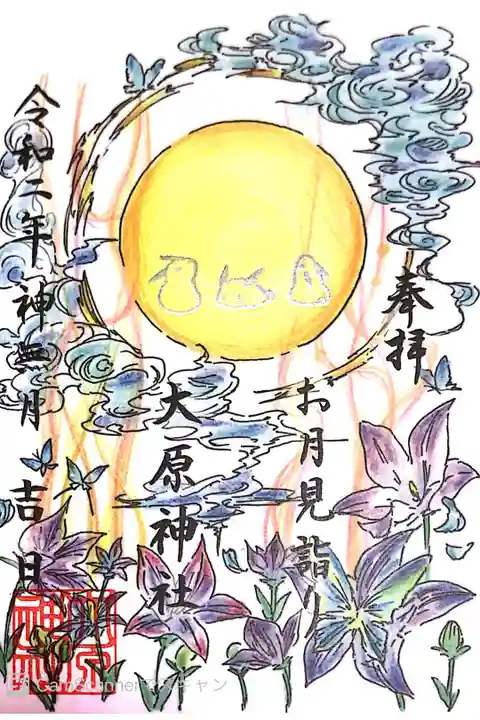 奉拝
お月見詣り
大原神社
令和二年 神無月 吉日
大原神社
CamScannerでスキャン